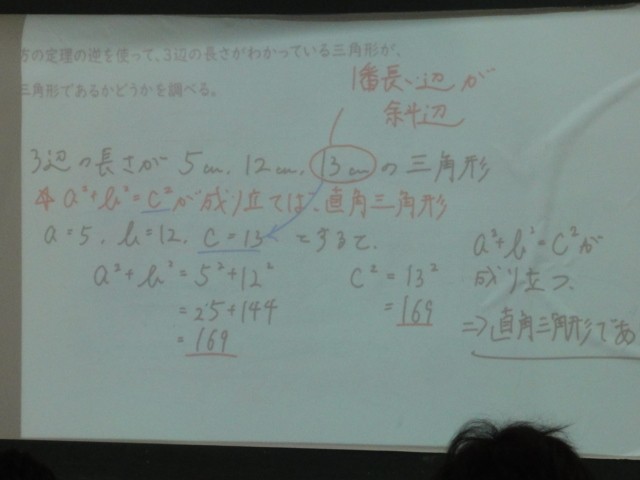 方の定理の逆を使って、3辺の長さがわかっている三角形が、
三角形であるかどうかを調べる。
1番長い辺が
斜辺
3辺の長さが 5cm, 12cm, 13cm の三角形
a²+b²=c²が成り立てば、直角三角形
a=5, b=12, c=13 とすると、
a²+b²=5²+12²
=25+144
=169
c²=13²
=169
a²+b²=c²が
成り立つ、
⇒直角三角形であ